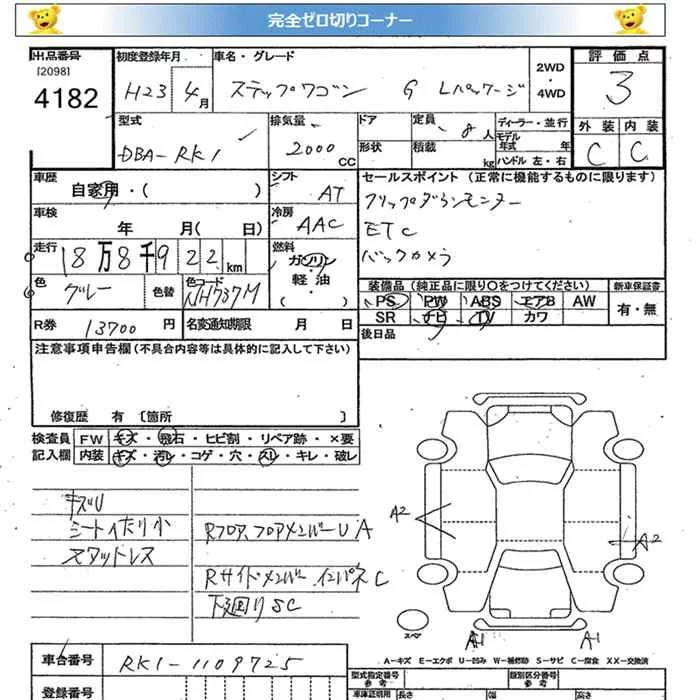 完全ゼロ切りコーナー
出品番号 初度登録年月 車名・グレード 2WD ・ 4WD 評価点
[2098]
4182 H23 4月 ステップワゴン G Lパッケージ 3
型式 排気量 ドア 定員 8人 ディーラー・並行 外装 内装
DBA-RK1 2000 CC 形状 積載 kg モデル年式 年 C C
ハンドル 左・右
車歴 シフト セールスポイント (正常に機能するものに限ります)
自家用・( ) AT フリップダウンモニター
車検 冷房 ETC
年 月(日) AAC バックカメラ
走行 18万8千922km 燃料 ガソリン・軽油・( )
色 グレー 色替 色コード NH737M 装備品 (純正品に限り○をつけてください) 新車保証書
PS PW ABS エアB AW 有・無
SR ナビ TV カワ
R券 13700円 名変通知期限 月 日 後日品
注意事項申告欄(不具合内容等は具体的に記入して下さい)
修復歴 有 〔箇所 〕
検査員 FW キズ・飛石・ヒビ割・リペア跡・×要
記入欄 内装 キズ・汚レ・コゲ・穴・スレ・キレ・破レ
キズU
シートイタリ小 Rフロア、フロアメンバーU A
スタッドレス
Rサイドメンバー、インパネ C
下廻りSC
A2
A2
スペア A1 A1
A-キズ E-エクボ U-凹み W-補修跡 S-サビ C-腐食 XX-交換済
車台番号 RK1-1109725 型式指定番号 参考 類別区分番号 参考
登録番号 車庫証明用 長さ 幅 高さ